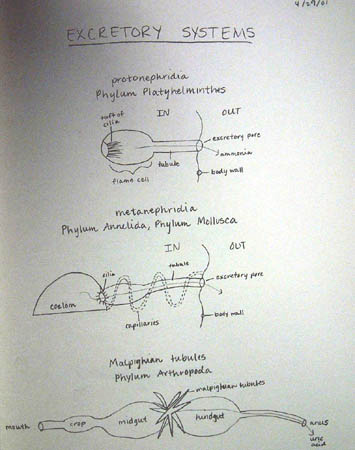 4/29/01
EXCRETORY SYSTEMS
protonephridia
Phylum Platyhelminthes
tuft of
cilia
IN OUT
excretory pore
ammonia
tubule
flame cell
body wall
metanephridia
Phylum Annelida, Phylum Mollusca
IN OUT
cilia
tubule
excretory pore
coelom
capillaries
body wall
Malpighian tubules
Phylum Arthropoda
malpighian tubules
mouth
crop
midgut
hindgut
anus
uric
acid